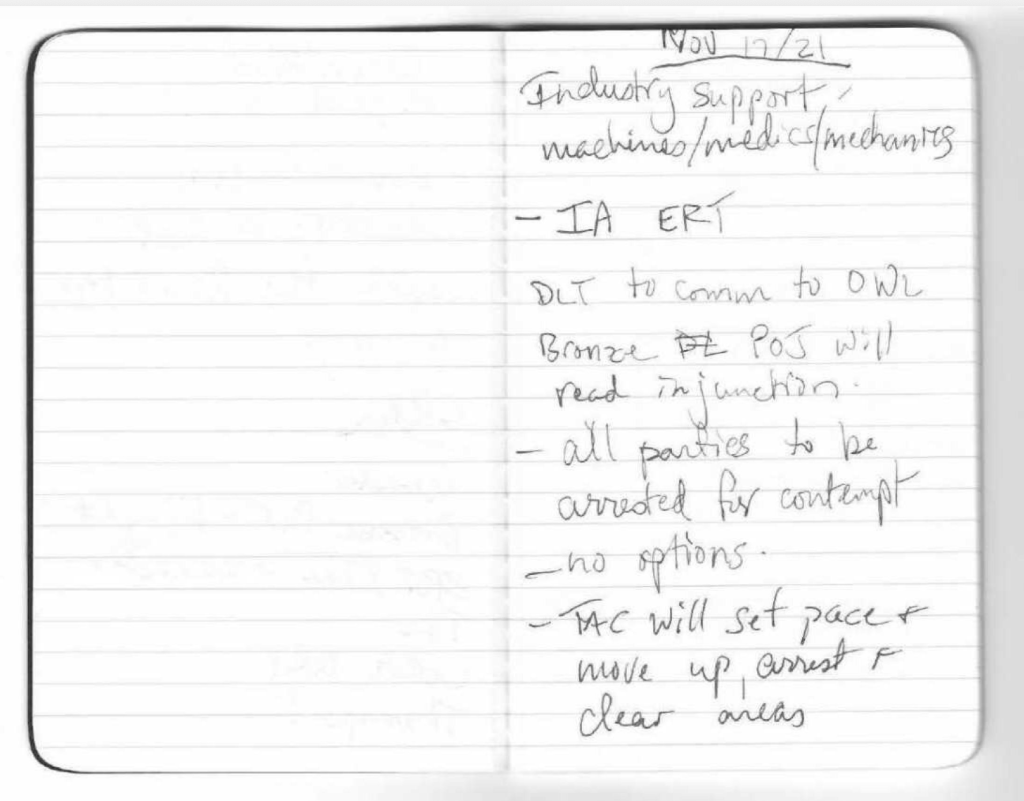 Nov 17/21
Industry support
machines/medics/mechanics
- IA ERT
DLT to comm to OWL
Bronze POJ will
read injunction.
- all parties to be
arrested for contempt
- no options.
- TAC will set pace +
move up, arrest +
clear areas